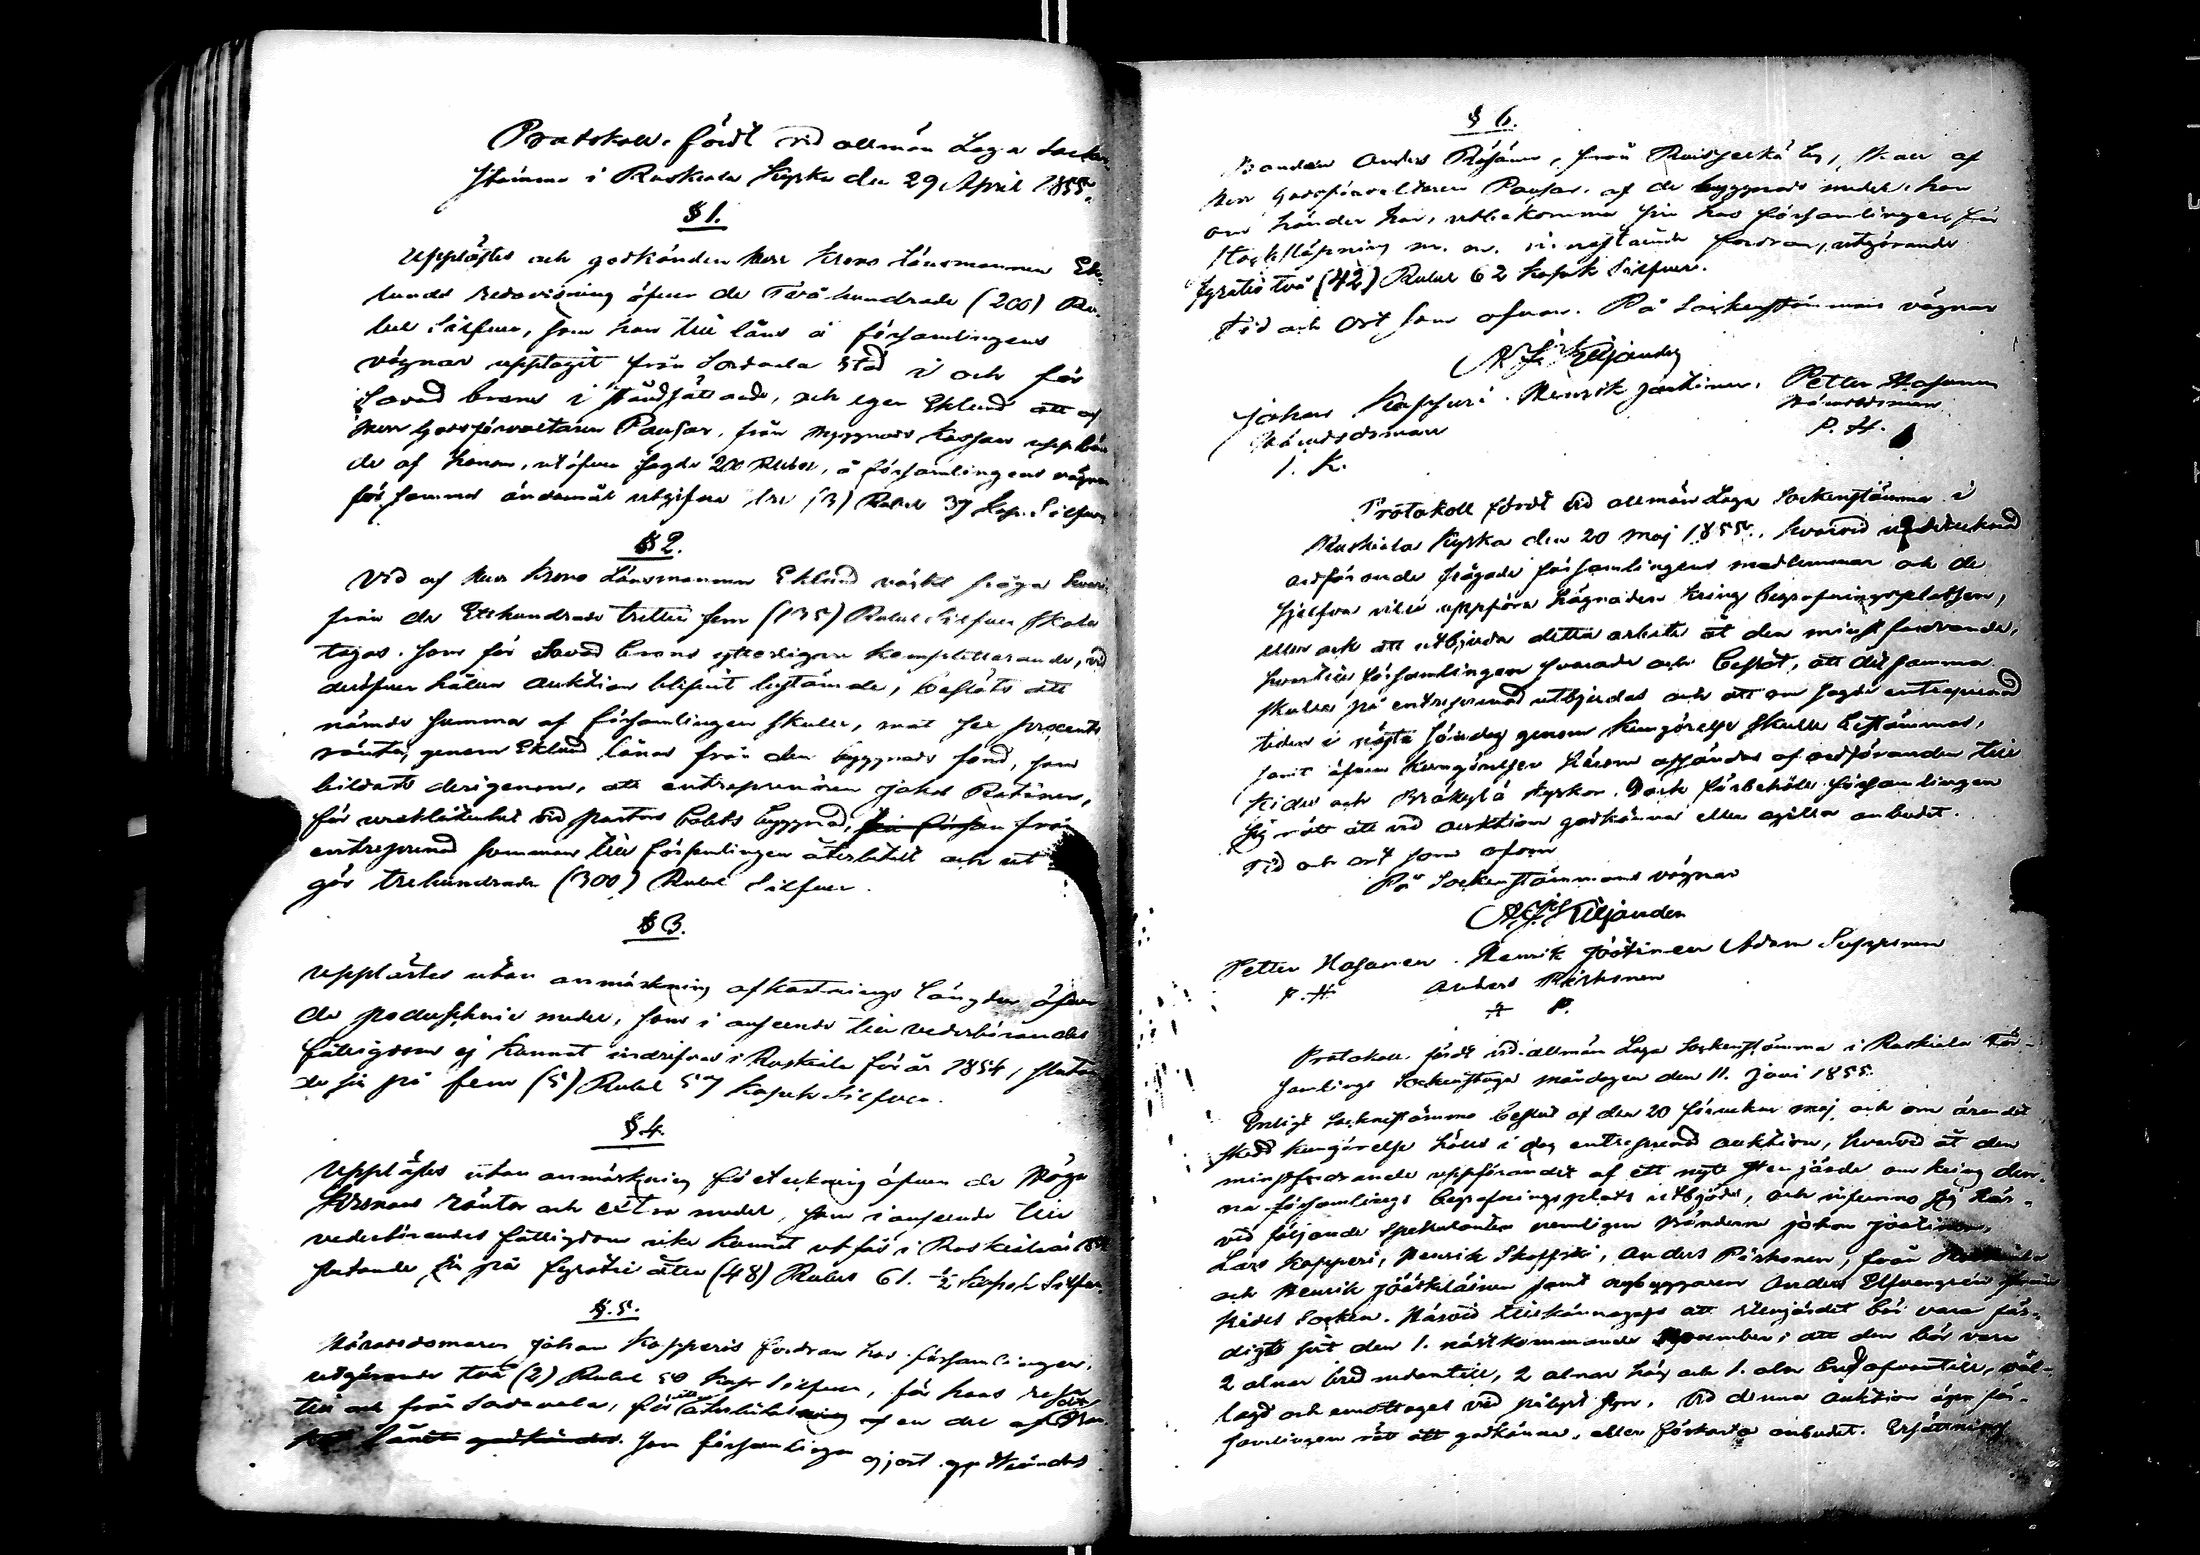 Protokoll, fördt vid allmän Laga Socken
stämma i Ruskiala Kyrka den 29 April 1855.
§ 1.
Upplästes och godkändes Herr Krono Länsmannen Ek-
lunds redovisning öfver de Två hundrade (200) Ru-
bel Silfver, som han till låns å församlingens
vägnar upptagit från Sordavala Stad i och för
Savad brons i ståndsättande, och eger Eklund att af
Herr Godsförvaltaren Pausar, från byggnads kassan uppbära
de af honom, utöfver sagde 200 Rubel, å församlingens vägnar
för samma ändamål utgifne tre (3) Rubel 37 Kop. Silfver
§ 2.
Vid af Herr Krono Länsmannen Eklund väckt fråga hvari-
från de Etthundrade trettio fem (135) Rubel Silfver skola
tagas, som för Savad brons ytterligare kompletterande, vid
deröfver hållen auktion blifvit bestämde, beslöts att
nämde summa af församlingen skulle, mot sex procents
ränta, genom Eklund lånas från den byggnads fond, som
bildats derigenom, att entreprenören Jakob Ratinen,
för uraktlåtenhet vid pastors bohls byggnad, från
entreprenad summan till församlingen återbetalt och ut
gör trehundrade (300) Rubel Silfver.
§ 3.
Upplästes utan anmärkning afkortnings längden öfver
de poduschnie medel, som i anseende till vederbörandes
fattigdom ej kunnat indrifvas i Ruskiala för år 1854, slutan
de sig på fem (5) Rubel 57 Kopek Silfver.
§ 4.
Upplästes utan anmärkning förteckning öfver de Höga
Kronans räntor och extra medel, som i anseende till
vederbörandes fattigdom icke kunnat utfås i Ruskiala år
slutande sig på fyratio åtta (48) Rubel 61 ½ Kopek Silfver.
§. 5.
Häradsdomaren Johan Kopperis fordran hos församlingen,
utgörande två (2) Rubel 50 Kop. Silfver, för hans resa
till och från Sordavala, för återbetalning af en del af
lånet godkändes. som församlingen gjort godkändes
§ 6.
Bonden Anders Räsänen, från Ruisselkä by, skall af
Herr Godsförvaltaren Pausar, af de byggnads medel, han
om händer har, utbekomma sin hos församlingen för
stockslöpning m. m. innestående fordran, utgörande
fyratio två (42) Rubel 62 Kopek Silfver.
Tid och Ort som ofvan. På Sockenstämmans vägnar
A. J. Kiljander
Johan Kopperi. Henrik Jaatinen. Petter Hosanen
Häradsdomare Nämndeman
J. K. P. H.
Protokoll fördt vid allmän Laga Sockenstämma i
Ruskiala Kyrka den 20 Maj 1855, hvarvid undertecknad
ordförande frågade församlingens medlemmar om de
sjelfva ville uppföra hägnaden kring begrafningsplatsen,
eller och att utbjuda detta arbete åt den minst fordrande,
hvartill församlingen svarade och beslöt, att det samma
skulle på entreprenad utbjudas och att om sagde entreprenad
tiden i nästa söndag genom kungörelse skulle bestämmas,
samt äfven kungörelser härom afsändas af ordföranden till
Kides och Bräkylä kyrkor. Dock förbehöll församlingen
sig rätt att vid auktion godkänna eller ogilla anbudet.
Tid och ort som ofvan
På Sockenstämmans vägnar
A. J. Kiljander
Petter Hosanen. Henrik Jaatinen Adam Supponen
P. H. Anders Pärhonen
A P.
Protokoll, fördt vid allmän Laga Sockenstämma i Ruskiala För-
samlings Sockenstuga måndagen den 11. Juni 1855.
Enligt Sockenstämmo beslut af den 20 förvekne Maj och om ärendet
skedd kungörelse hölls i dag entreprenad auktion, hvarvid åt den
minstfordrande uppförandet af ett nytt stengärde omkring den-
na församlings begrafningsplats utbjöds, och infunno sig här-
vid följande spekulanter nemligen bönderne Johan Jaatinen,
Lars Kopperi, Henrik Skoffski, Anders Pärhonen, från
och Henrik Jääskläinen samt nybyggaren Anders Elfvengren från
Kides Socken. Härvid tillkännagafs att stengärdet bör vara fär-
digt till den 1. nästkommande November; att den bör vara
2 alnar bred nedantill, 2 alnar hög och 1. aln bred ofvantill, väl-
lagd och emottages vid påföljd syn. Vid denna auktion äger för-
samlingen rätt att godkänna, eller förkasta anbudet. Ersättning